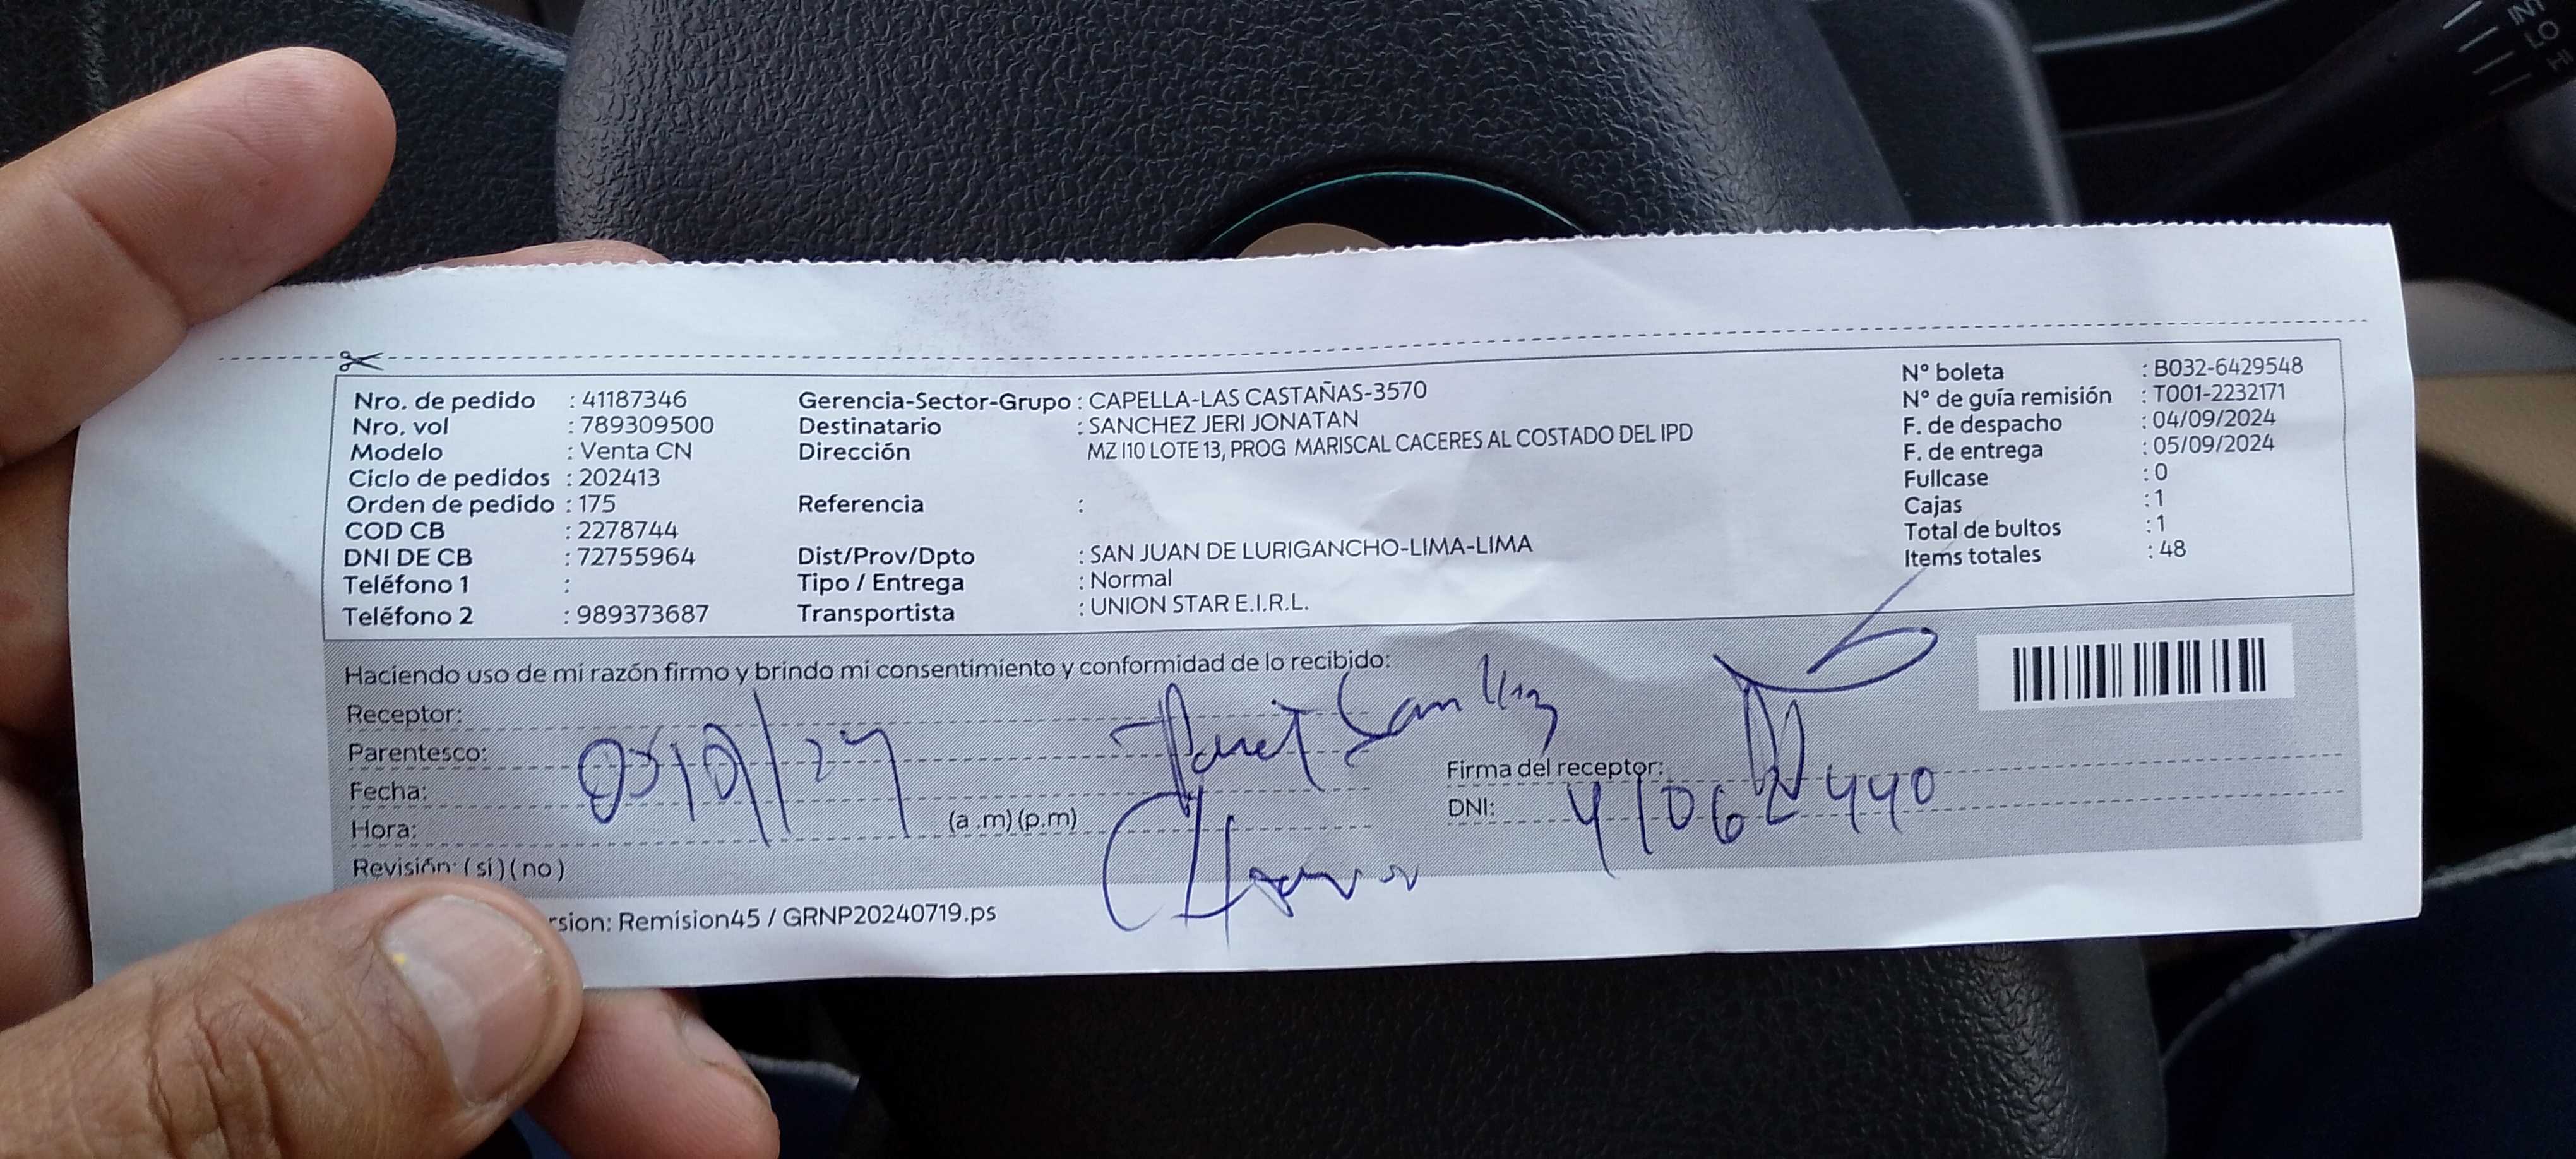 Nro. de pedido : 41187346
Nro. vol : 789309500
Modelo : Venta CN
Ciclo de pedidos : 202413
Orden de pedido : 175
COD CB : 2278744
DNI DE CB : 72755964
Teléfono 1 :
Teléfono 2 : 989373687
Gerencia-Sector-Grupo : CAPELLA-LAS CASTAÑAS-3570
Destinatario : SANCHEZ JERI JONATAN
Dirección MZ I10 LOTE 13, PROG MARISCAL CACERES AL COSTADO DEL IPD
Referencia :
Dist/Prov/Dpto : SAN JUAN DE LURIGANCHO-LIMA-LIMA
Tipo / Entrega : Normal
Transportista : UNION STAR E.I.R.L.
N° boleta : B032-6429548
N° de guía remisión : T001-2232171
F. de despacho : 04/09/2024
F. de entrega : 05/09/2024
Fullcase : 0
Cajas : 1
Total de bultos : 1
Items totales : 48
Haciendo uso de mi razón firmo y brindo mi consentimiento y conformidad de lo recibido:
Receptor:
Parentesco:
Fecha: 05/9/24
Hora: (a .m) (p.m)
Revisión: ( sí ) ( no )
Firma del receptor:
DNI: 41062440
rsion: Remision45 / GRNP20240719.ps
INT
LO
HI